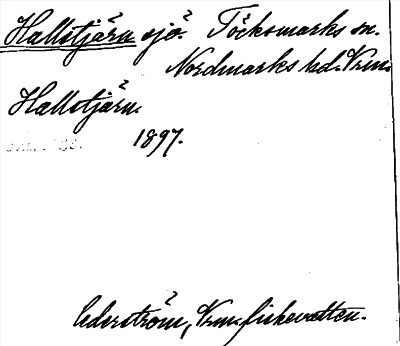 Hallstjärn sjö. Töcksmarks sn.
Nordmarks hd. Vrm.
Hallstjärn.
1897.
Cederström, Vrm. fiskevatten.